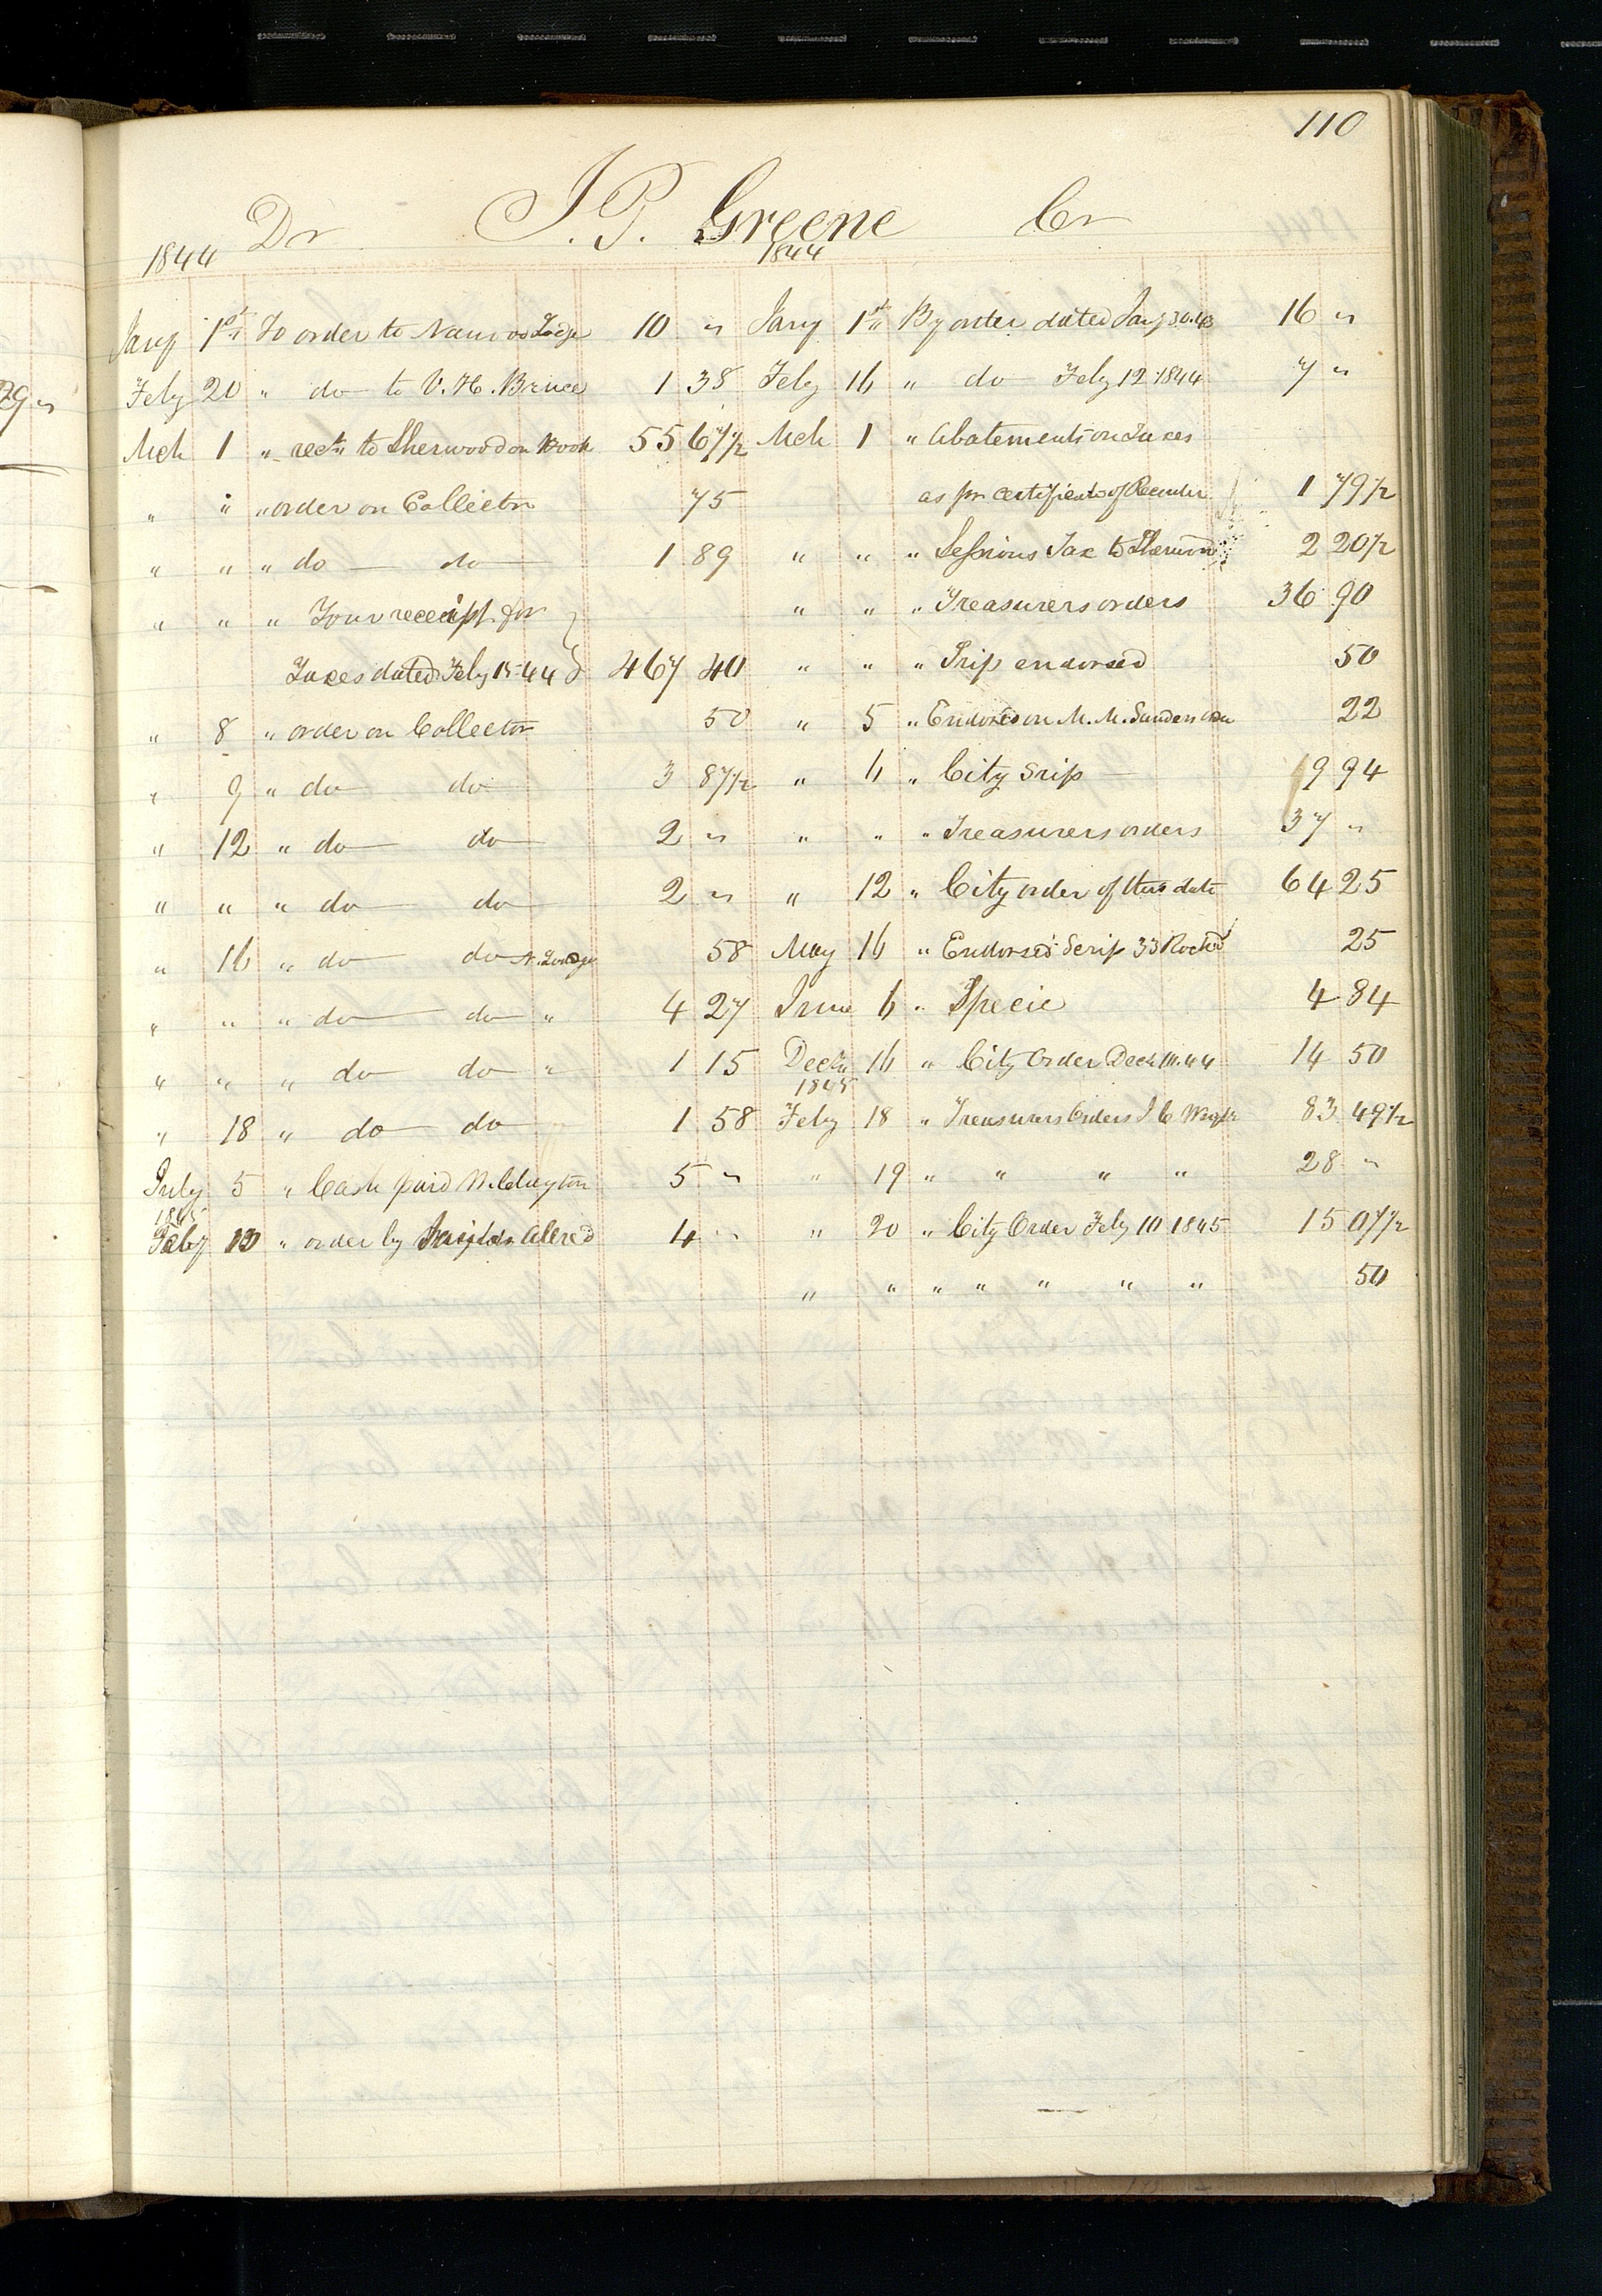 110
Dr J. P. Greene Cr
1844 1844
Jany 1st To order to Nauvoo Lodge 10 " Jany 1st By order dated Jany 30. 43 16 "
Feby 20 " do to V. H. Bruce 1 38 Feby 16 " do Feby 12 1844 7 "
Mch 1 " rect to Sherwood on Book 55 67½ Mch 1 " Abatements on Taxes
" " " order on Collector 75 as pr certificate of Recorder 1 79½
" " " do do 1 89 " " " Sessions Tax to Sherwood 2 20½
" " " Your receipt for } " " " Treasurers orders 36 90
Taxes dated Feby 15 44 } 467 40 " " " Srip endorsed 50
" 8 " order on Collector 50 " 5 " Endorsd on M. M. Sanders 22
" 9 " do do 3 87½ " 11 " City Srip 19 94
" 12 " do do 2 " " " " Treasurers orders 37 "
" " " do do 2 " " 12 " City order of this date 64 25
" 16 " do do N. Lodge 58 May 16 " Endorsed Scrip 33 25
" " " do do " 4 27 June 6 " Specie 4 84
" " " do do " 1 15 Decr 16 " City Order Decr 44 14 50
1845
" 18 " do do 1 58 Feby 18 " Treasurers Orders J C Wright 83 49½
July 5 " Cash paid W. Clayton 5 " " 19 " " " " 28 "
1845
Feby 10 " order by Allred 4 " " 20 " City Order Feby 10 1845 15 07½
" " " " " " " 50
29 "